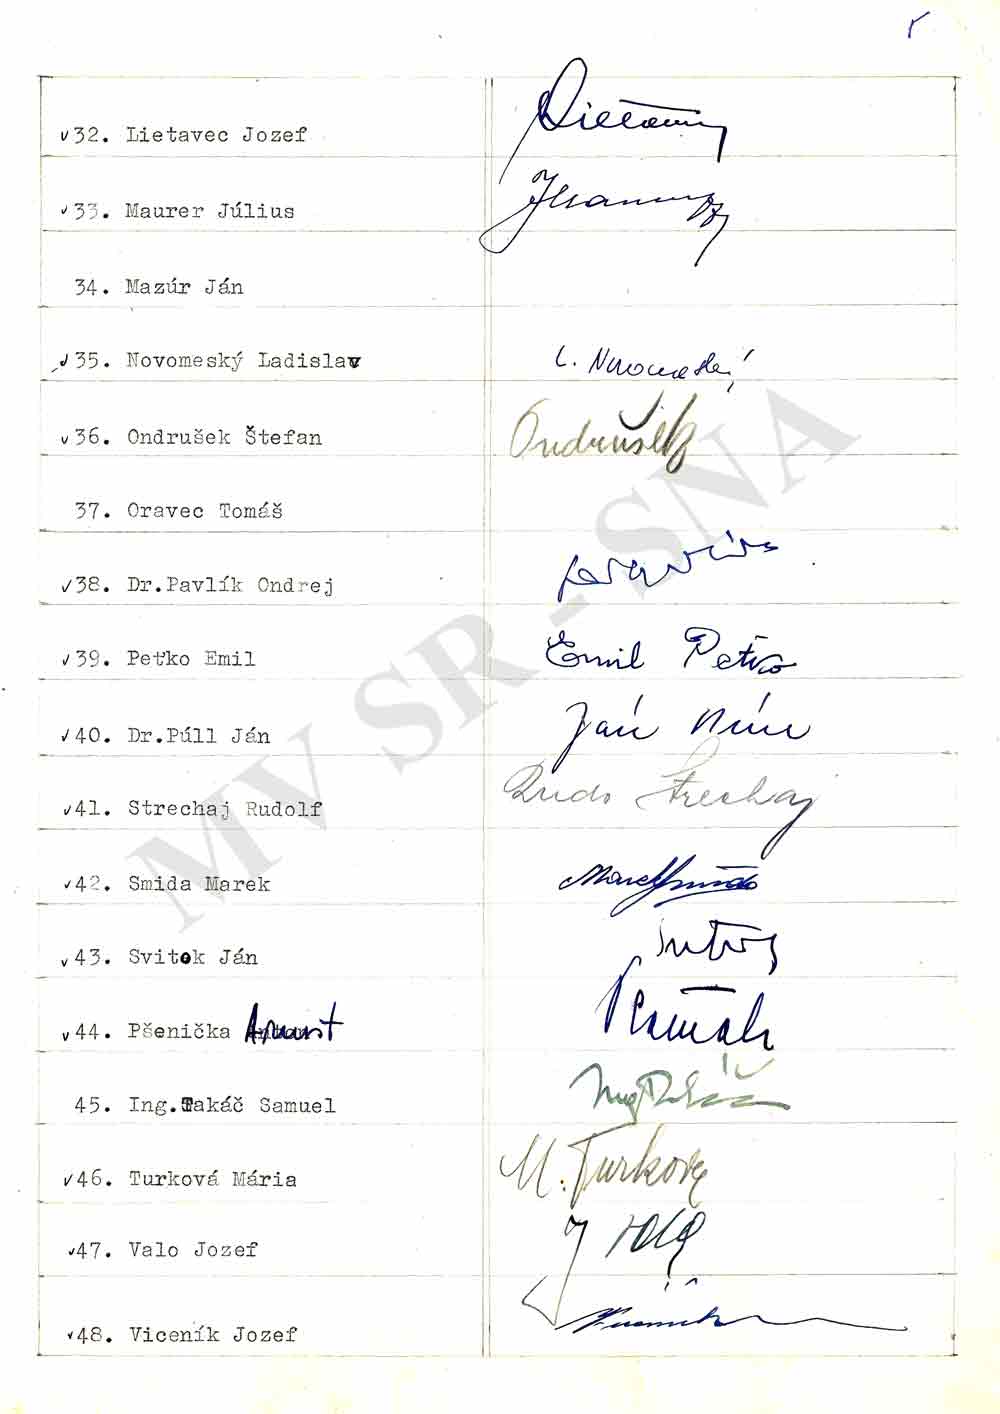 ✓32. Lietavec Jozef
✓33. Maurer Július
34. Mazúr Ján
✓35. Novomeský Ladislav L. Novomeský
✓36. Ondrušek Štefan Ondrušek
37. Oravec Tomáš
✓38. Dr.Pavlík Ondrej
✓39. Peťko Emil Emil Petko
✓40. Dr.Púll Ján Ján
✓41. Strechaj Rudolf Rudo Strechaj
✓42. Smida Marek Marek Smida
✓43. Svitok Ján
✓44. Pšenička
45. Ing.Takáč Samuel Ing Takáč
✓46. Turková Mária M. Turková
✓47. Valo Jozef J Valo
✓48. Viceník Jozef
MV SR - SNA